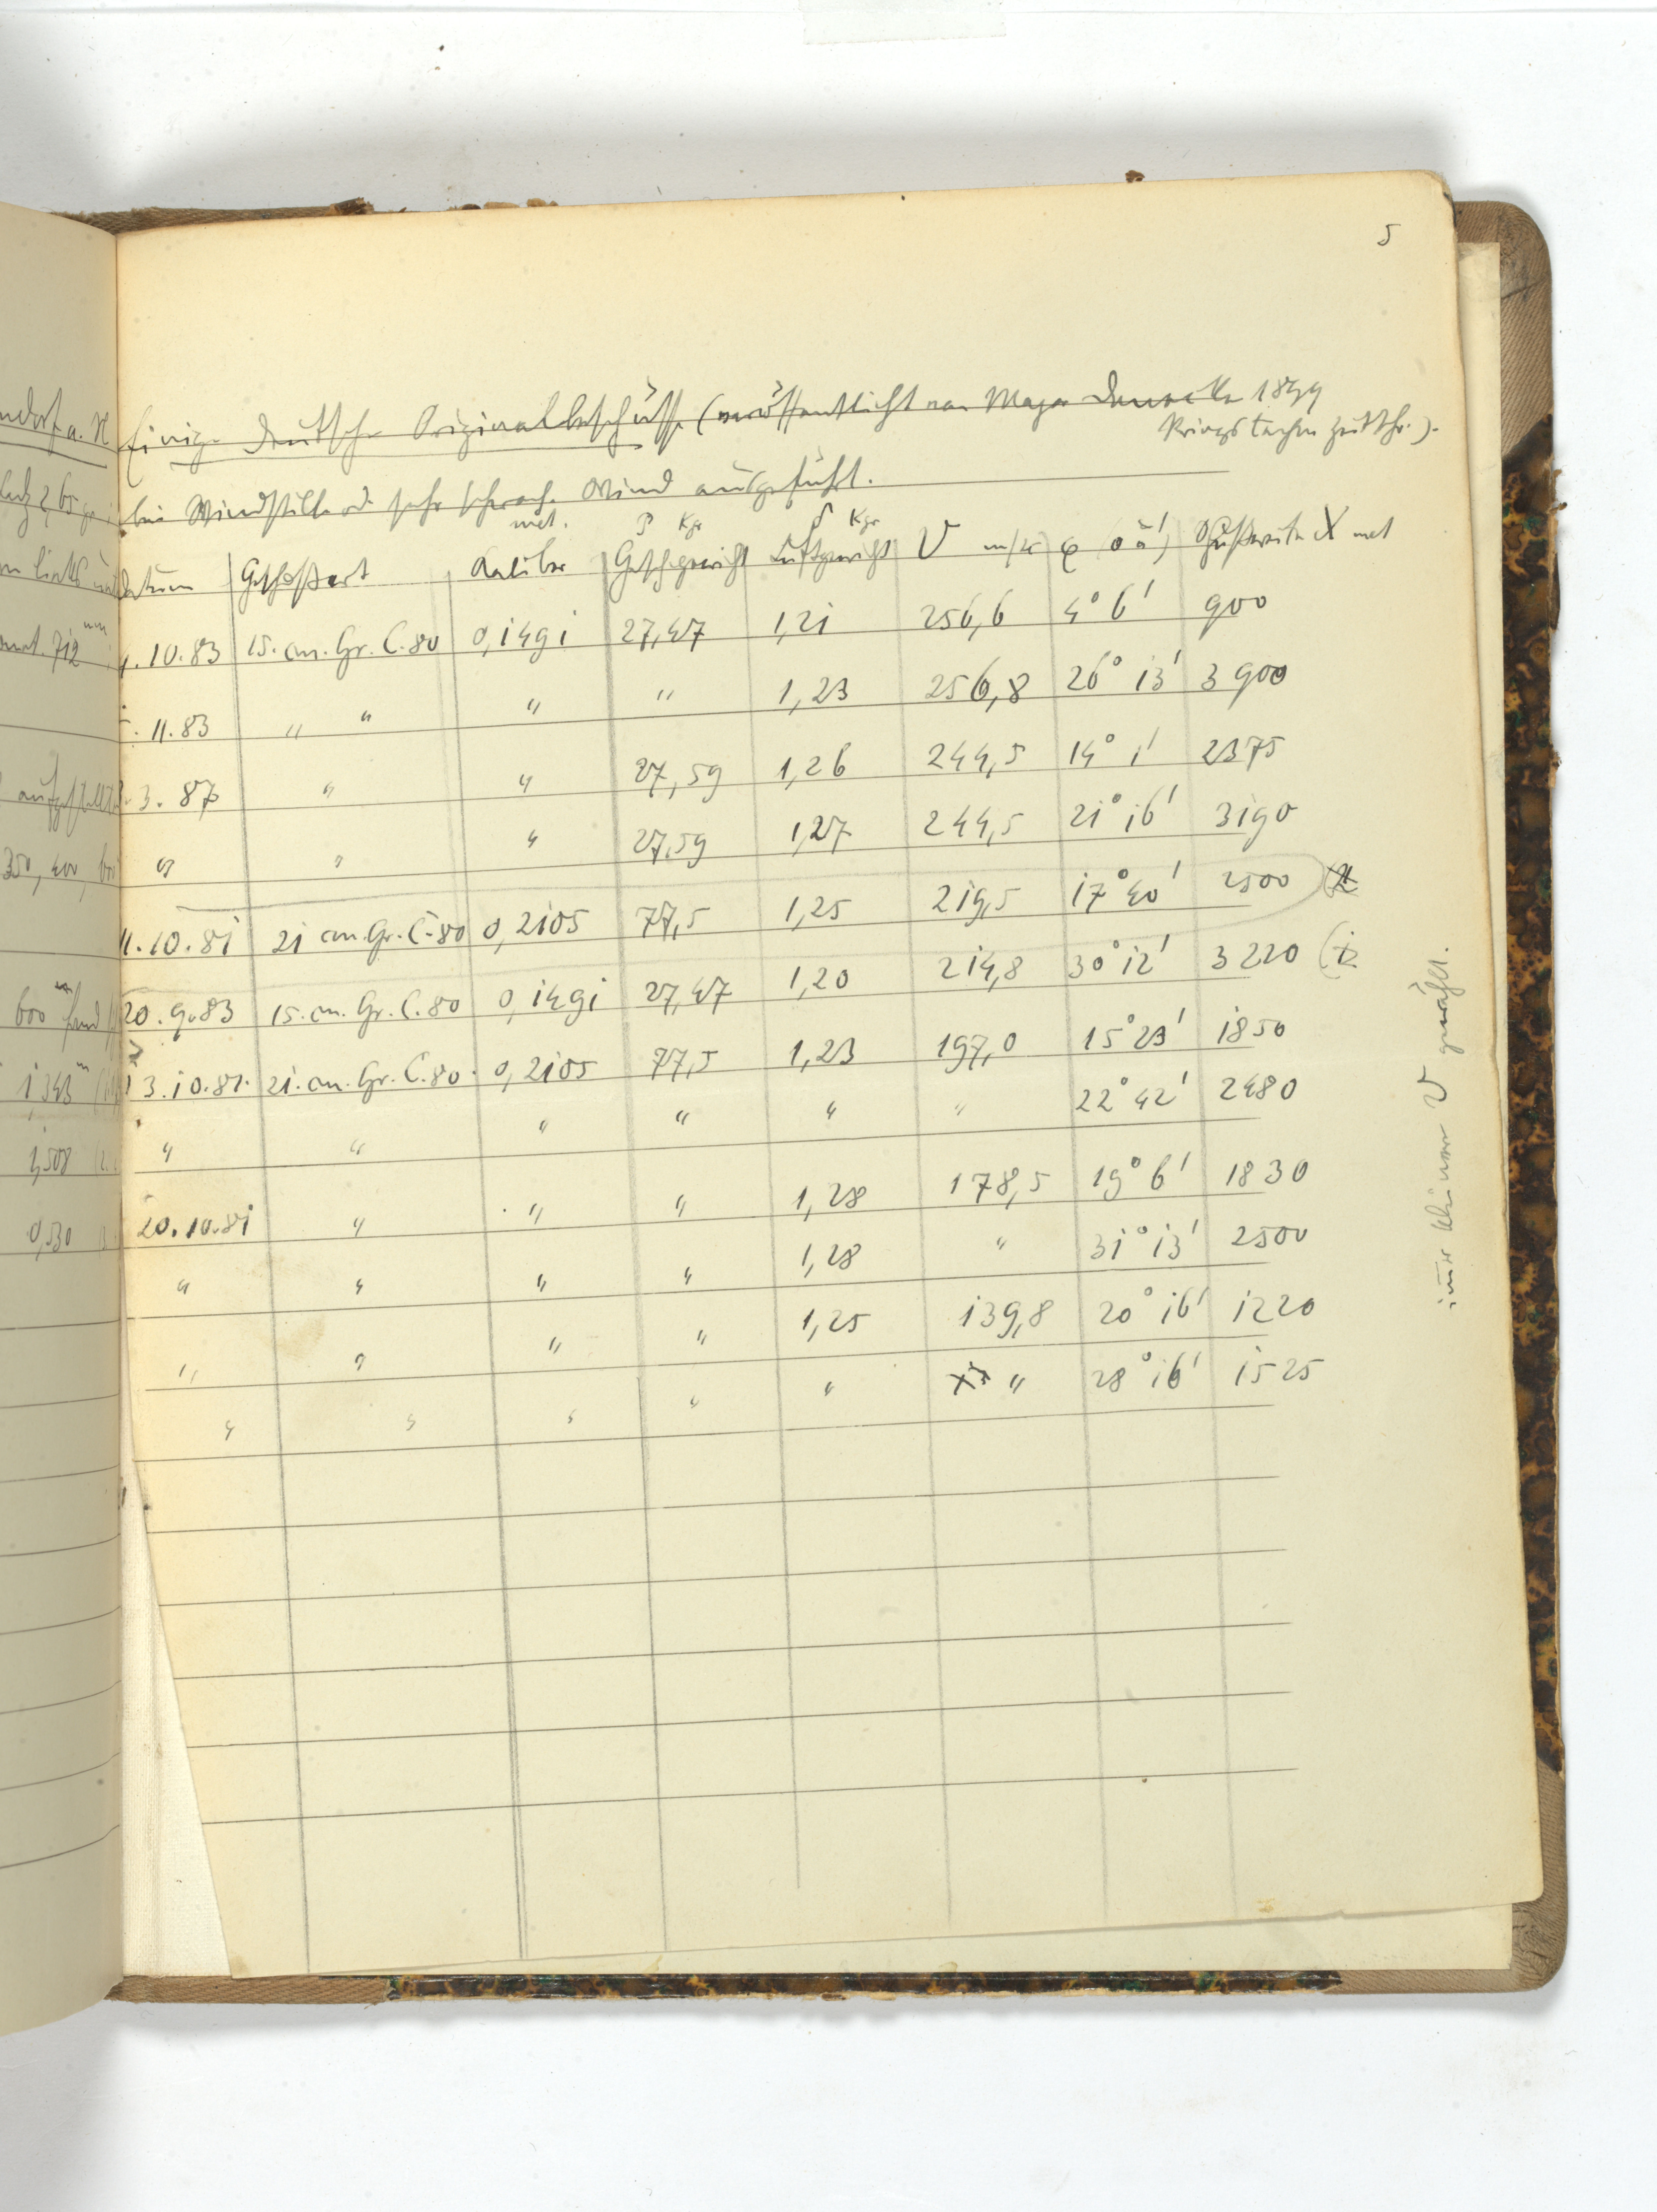 5
Einige deutsche Originalbeschüsse (veröffentlicht von Major 1899
Kriegstechn. Zeitschr.).
bei Windstille od. sehr schwach. Wind ausgeführt.
met. P Kgr δ Kgr
Datum Geschoßart Kaliber Geschgewicht Luftgewicht V m/sec φ (° u ') Schußweite X met
.10.83 15. cm. Gr. C. 80 0,1491 27,47 1,21 256,6 4° 6' 900
.11.83 " " " " 1,23 256,8 26° 13' 3900
.3.87 " " 27,59 1,26 244,5 14° 1' 2375
" " " 27,59 1,27 244,5 21° 16' 3190
11.10.81 21 cm. Gr. C. 80 0,2105 77,5 1,25 219,5 17° 40' 2500 (2
20.9.83 15. cm. Gr. C. 80 0,1491 27,47 1,20 214,8 30° 12' 3220 (1
13.10.81. 21. cm. Gr. C. 80. 0,2105 77,5 1,23 197,0 15° 23' 1850
" " " " " " 22° 42' 2480
20.10.81 " " " 1,28 178,5 19° 6' 1830
" " " " 1,28 " 31° 13' 2500
" " " " 1,25 139,8 20° 16' 1220
" " " " " " 28° 16' 1525
immer kleineres V gewählt.
ndorf a. N
712 mm
350, 400,
600 m
1343 m
1,508
0,530